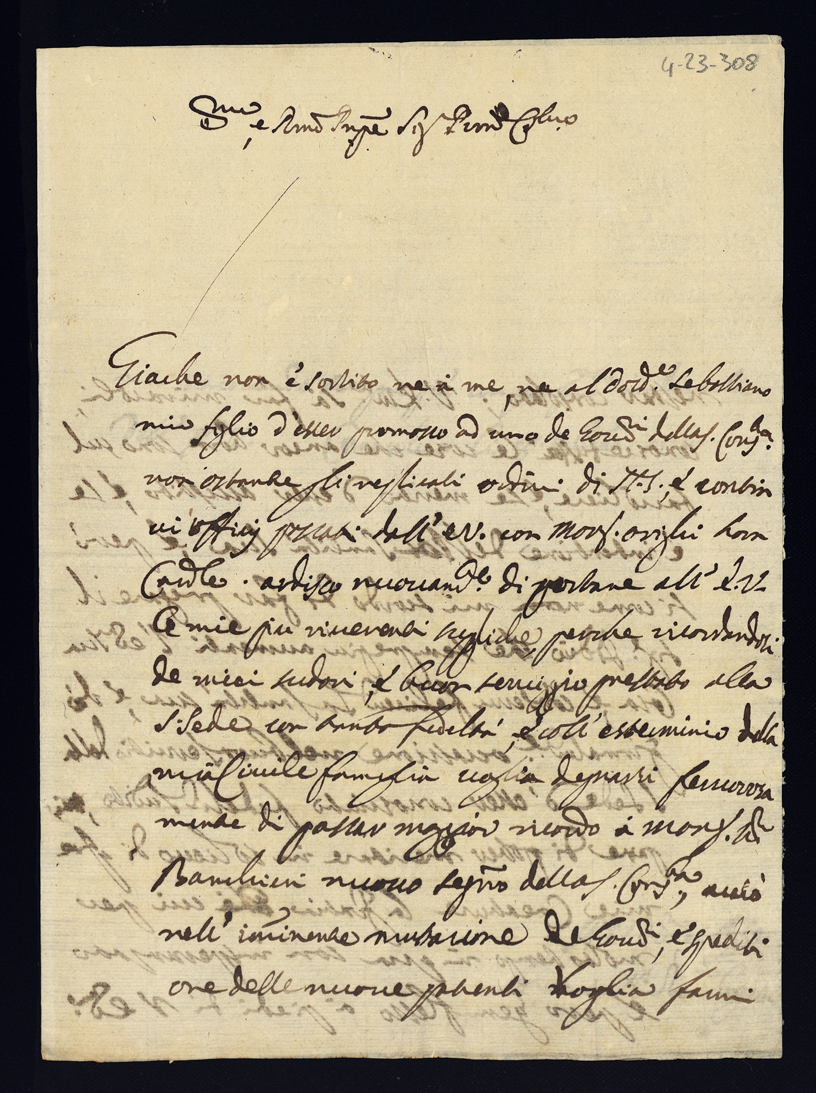 4-23-308
Em.mo e Rmo Prnpe Sigr Prone Col.mo
Giache non è sortito ne à me, ne al Dotte. Sebastiano
mio figlio d'esser promosso ad uno de Gov.ni della S. Cons.ta
non ostante gli replicati ordini di N. S., e contin
ui officij passati dall' E.V. con Mons. Orighi hora
Cardle. ardisco nuovamte. di portare all' E. V.
le mie più riverenti suppliche, perche ricordandosi
de miei sudori, e buon servizio prestato alla
S. Sede con tanta fedeltà, e coll' esterminio della
mia Civile famiglia voglia degnarsi
mente di passar maggior ricordo à Mons.
Banchieri nuovo Segrio della S. Cons.ta, acciò
nell' imminente mutazione de Gov.ni, e spediti
one delle nuove patenti voglia farmi